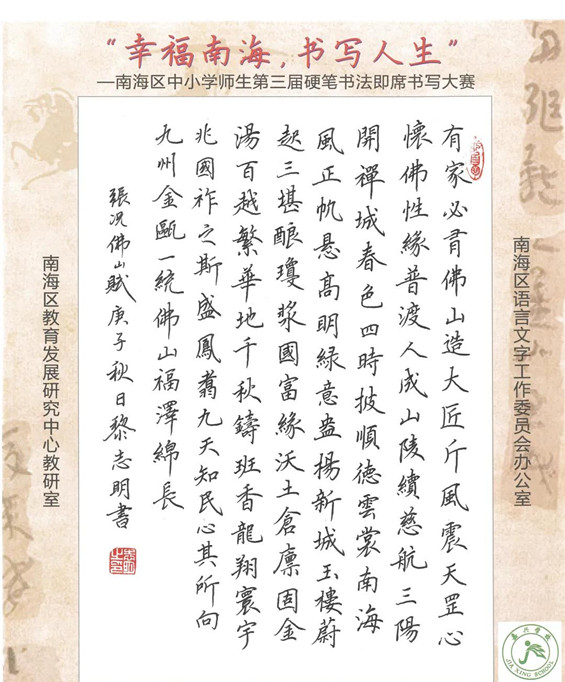 “幸福南海，书写人生”
—南海区中小学师生第三届硬笔书法即席书写大赛
有家必有佛山造大匠斤風震天罡心
懷佛性緣普渡人成山陵續慈航三陽
開禪城春色四時披順德雲裳南海
風正帆悬高明緑意盎揚新城玉樓蔚
起三堪釀瓊漿國富緣沃土倉廪固金
湯百越繁華地千秋鑄班香龍翔寰宇
兆國祚之斯盛鳳翥九天知民心其所向
九州金甌一統佛山福澤綿長
張况佛山賦庚子秋日黎志明書
南海区语言文字工作委员会办公室
南海区教育发展研究中心教研室
JIA XING SCHOOL